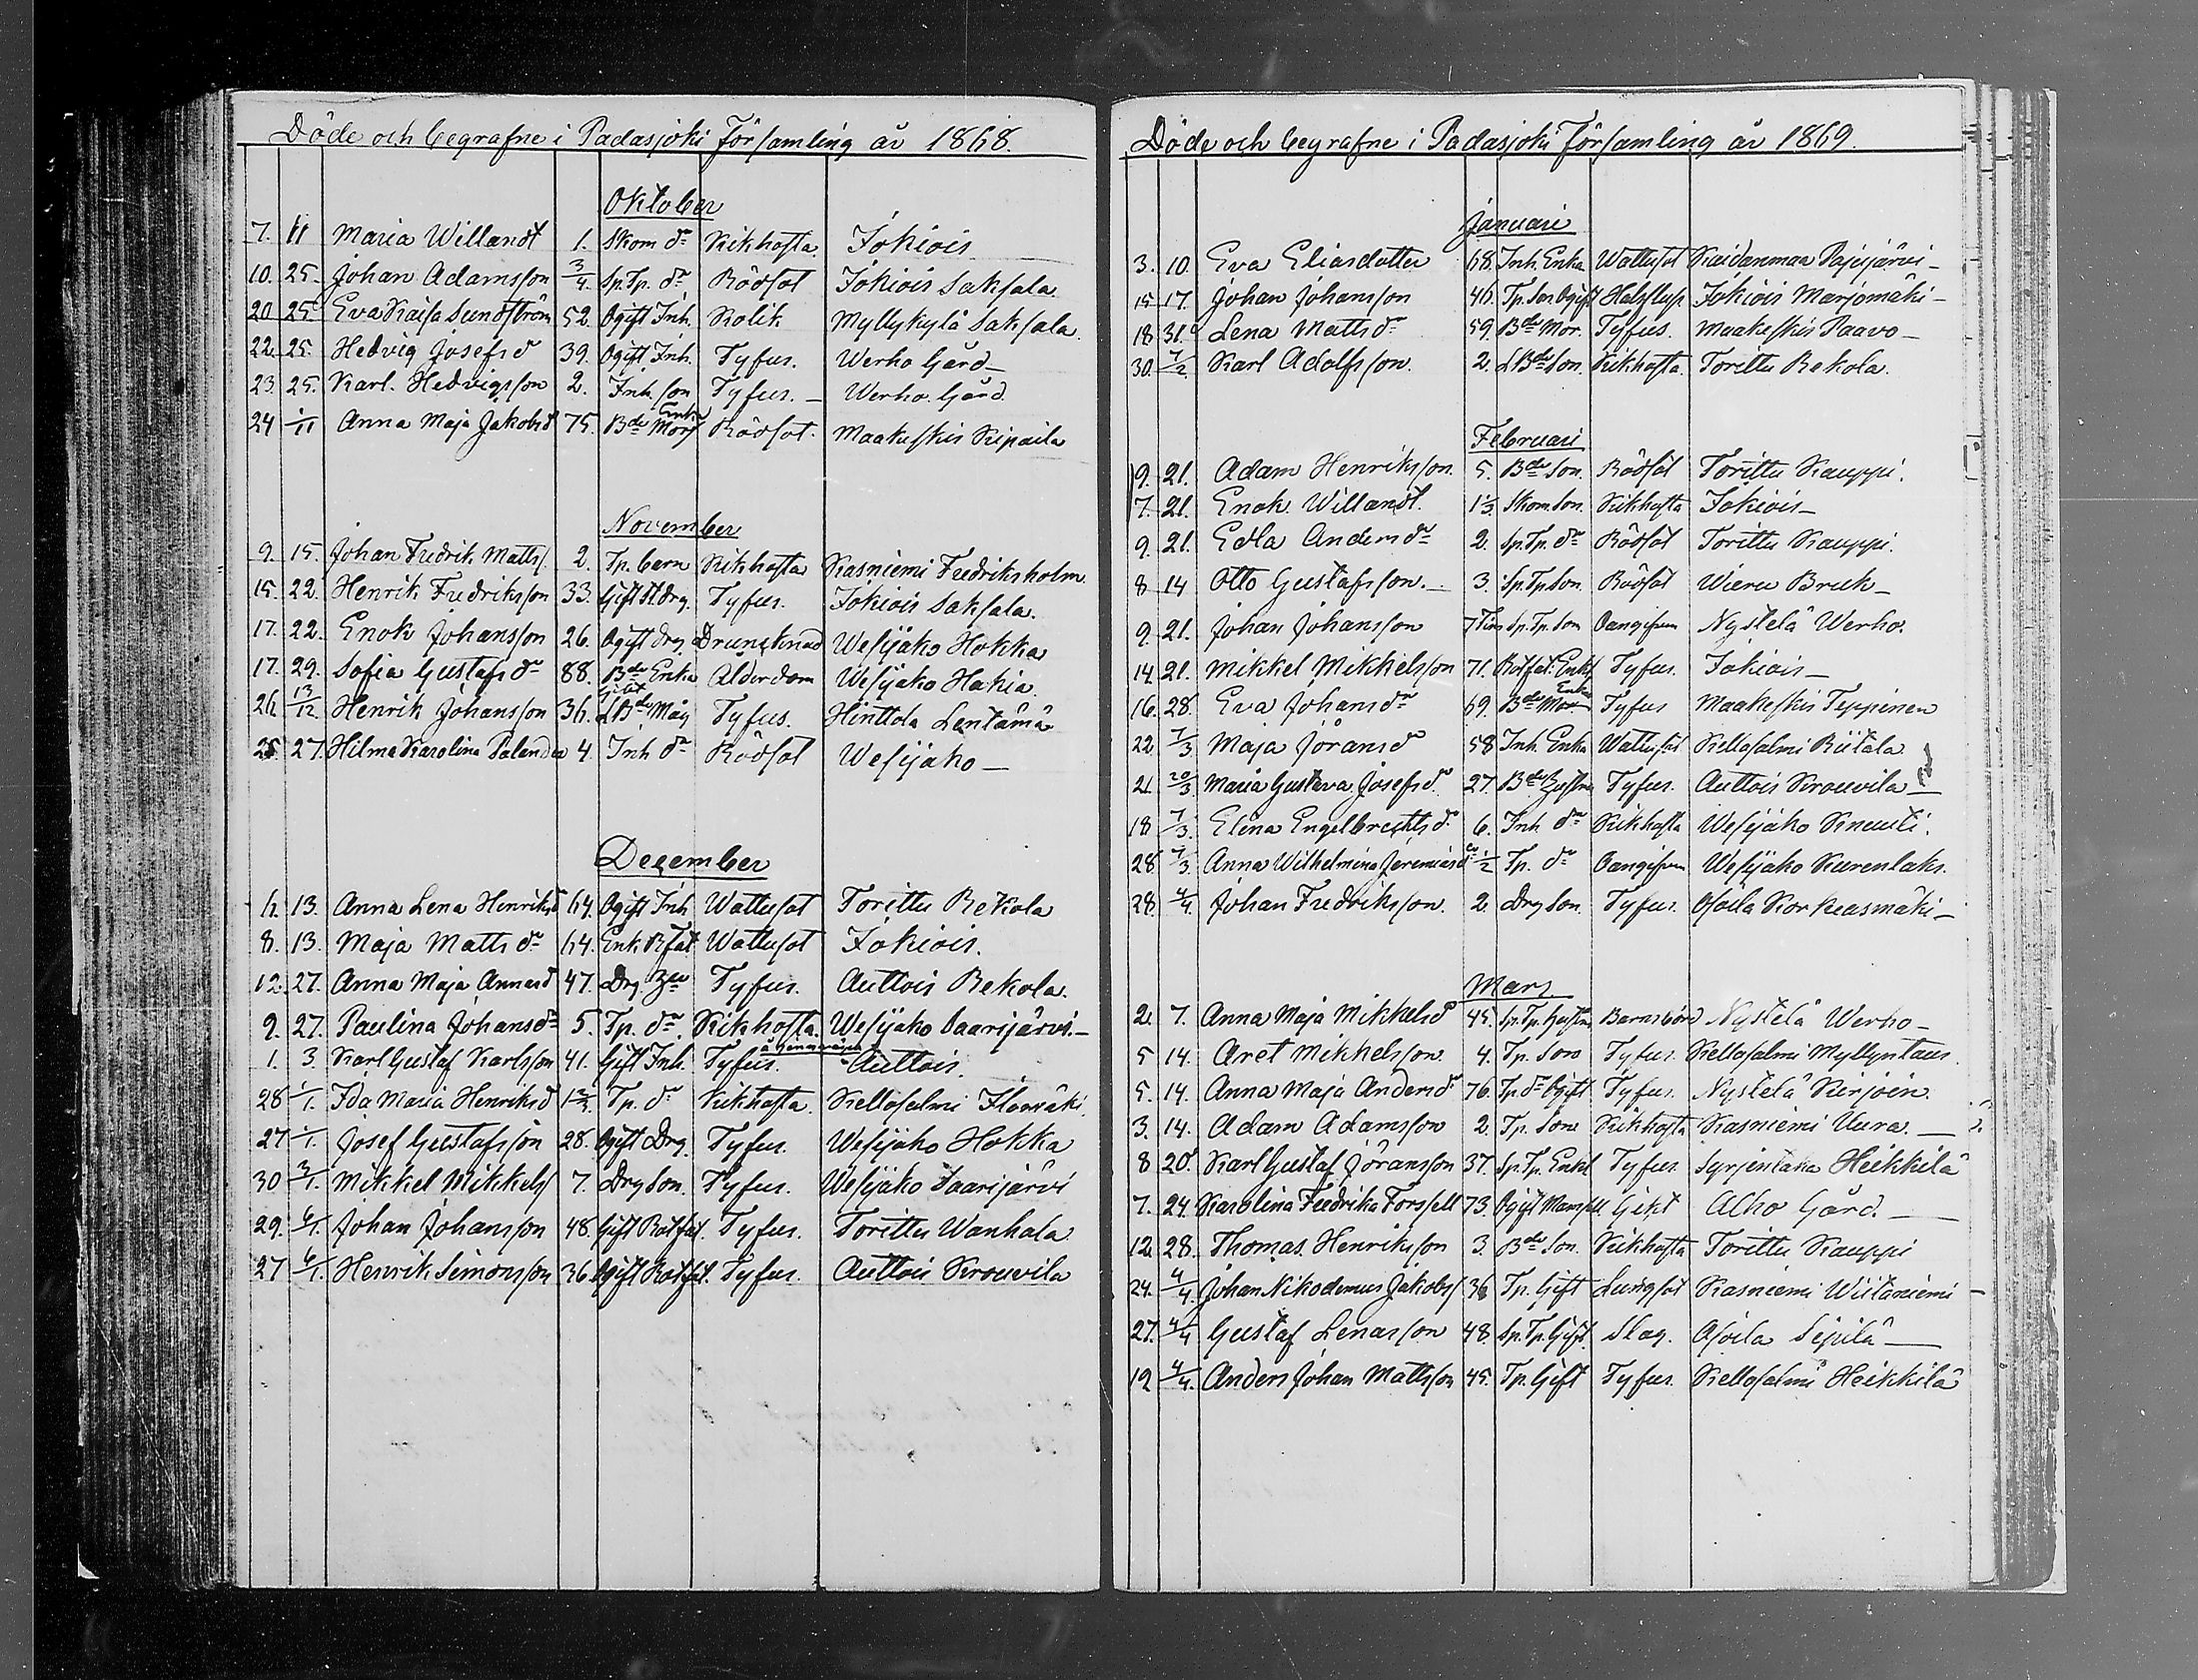 Döde och begrafne i Padasjoki Församling år 1868.
Oktober
7. 11 Maria Willandt 1. Skom dr Kikhosta. Jokiois
10. 25. Johan Adamsson 3/4 Sp. Tp. dr Rödsot Jokiois Saksala
20 25. Eva Kaisa Sundström 52. Ogift Inh. Kolik Myllykylä Saksala.
22. 25. Hedvig Josefsd 39. Ogift Inh. Tyfus. Werho Gård
23. 25. Karl. Hedvigsson 2. Inh. son Tyfus. Werho Gård
24 1/11 Anna Maja Jakobsd 75. Bde Mor Enka Rödsot. Maakeskis Kipaila
November
9. 15. Johan Fredrik Matts. 2. Tp. barn Kikhosta Kasniemi Fredriksholm
15. 22. Henrik Fredriksson 33. Gift St. drg. Tyfus. Jokiois Saksala.
17. 22. Enok Johansson 26. Ogift drg. Drunknad Wesijako Hokka
17. 29. Sofia Gustafs dr 88. Bde Enka Ålderdom Wesijako Hakia.
26 13/12 Henrik Johansson 36. LBde Måg Tyfus. Hinttola Lentämä
25. 27. Hilma Karolina Palander 4. Inh dr Rödsot Wesijako —
December
6. 13. Anna Lena Henriksd 64. Ogift Inh Wattusot Torittu Rekola
8. 13. Maja Matts dr 64. Enk. R. fat Wattusot Jokiois.
12. 27. Anna Maja Annasd 47. Drg. Tyfus. Auttois Rekola.
9. 27. Paulina Johansdr 5. Tp. dr Kikhosta. Wesijako Saarijärvi.—
1. 3 Karl Gustaf Karlsson 41. Gift Inh. Tyfus. Auttois.
28 1/1. Ida Maria Henriksd 1 2/3 Tp. dr Kikhosta. Kellosalmi Ilorâki
27 1/1. Josef Gustafsson 28. Ogift Drg. Tyfus. Wesijako Hokka
30 3/1. Mikkel Mikkels 7. Drg son. Tyfus. Wesijako Saarijärvi
29. 6/1. Johan Johansson 48. Gift Rotfat. Tyfus. Torittu Wanhala
27 6/1. Henrik Simonsson 36 Ogift Rotfat. Tyfus. Auttois Krouvila
Döde och begrafne i Padasjoki Församling år 1869.
Januari
3. 10. Eva Eliasdotter 68. Inh. Enka Wattusot Kaidanmaa Pajujärvi —
15 17. Johan Johansson 46. Tp. Son Ogift Halsflup. Jokiois Marjomäki —
18 31. Lena Matts dr 59. Bde Mor. Tyfus. Maakeskis Paavo —
30. 7/2. Karl Adolfsson. 2. LBde Son. Kikhosta. Torittu Rekola.
Februari
9. 21. Adam Henriksson. 5. Bde Son. Rödsot Torittu Kauppi.
7. 21. Enok Willandt. 1 1/3 Skom. son. Kikhosta Jokiois —
9. 21. Edla Anders dr 2. Sp. Tp. dr Rödsot Torittu Kauppi.
8 14 Otto Gustafsson. 3. Sp. Tp. Son. Rödsot Wieru Bruk —
9. 21. Johan Johansson 7 Tim Sp. Tp. Son Oangifven Nystelä Werho.
14. 21. Mikkel Mikkelsson 71. Rotfat. Enkl Tyfus. Jokiois —
16. 28. Eva Johans dr 69. Bde Mor Enka Tyfus Maakeskis Teppinen
22 7/3 Maja Jöransd 58 Inh. Enka Wattusot Kellosalmi Riitala
21. 20/3 Maria Gustava Josefs d. 27. Bde Hustru Tyfus. Auttois Krouvila —
18 7/3. Elina Engelbrechts d. 6. Inh dr Kikhosta Wesijako Knuuti.
28. 7/3. Anna Wilhelmina Jeremiasd 1/2 Tp. dr Oangifven Wesijako Kurenlaks.
28. 4/4. Johan Fredriksson. 2. Drg son. Tyfus. Osoila Korkeasmäki —
Mars.
2. 7. Anna Maja Mikkelsd 45. Sp. Tp. Hustru Barnsbörd Nystelä Werho —
5 14. Aret Mikkelsson 4. Tp. Son Tyfus. Kellosalmi Myllyntaus.
5. 14. Anna Maja Anders d. 76. Tp. dr Ogift Tyfus. Nystelä Kirjoin.
3. 14. Adam Adamsson 2. Tp. Son Kikhosta Kasniemi Uura. —
8 20. Karl Gustaf Jöransson 37. Sp. Tp. Enkl Tyfus. Syrjintaka Heikkilä
7. 24. Karolina Fredrika Forssell 73. Ogift Mamsell Gikt Alho Gård. —
12. 28. Thomas Henriksson 3. Bde Son. Kikhosta Torittu Kauppi
24. 4/4. Johan Nikodemus Jakobs 36 Tp. Gift Lungsot Kasniemi Wiitaniemi —
27. 4/4 Gustaf Lenasson 48. Sp. Tp. Gift. Slag. Osoila Sipilä —
12 4/4. Anders Johan Mattsson 45. Tp. Gift Tyfus. Kellosalmi Heikkilä